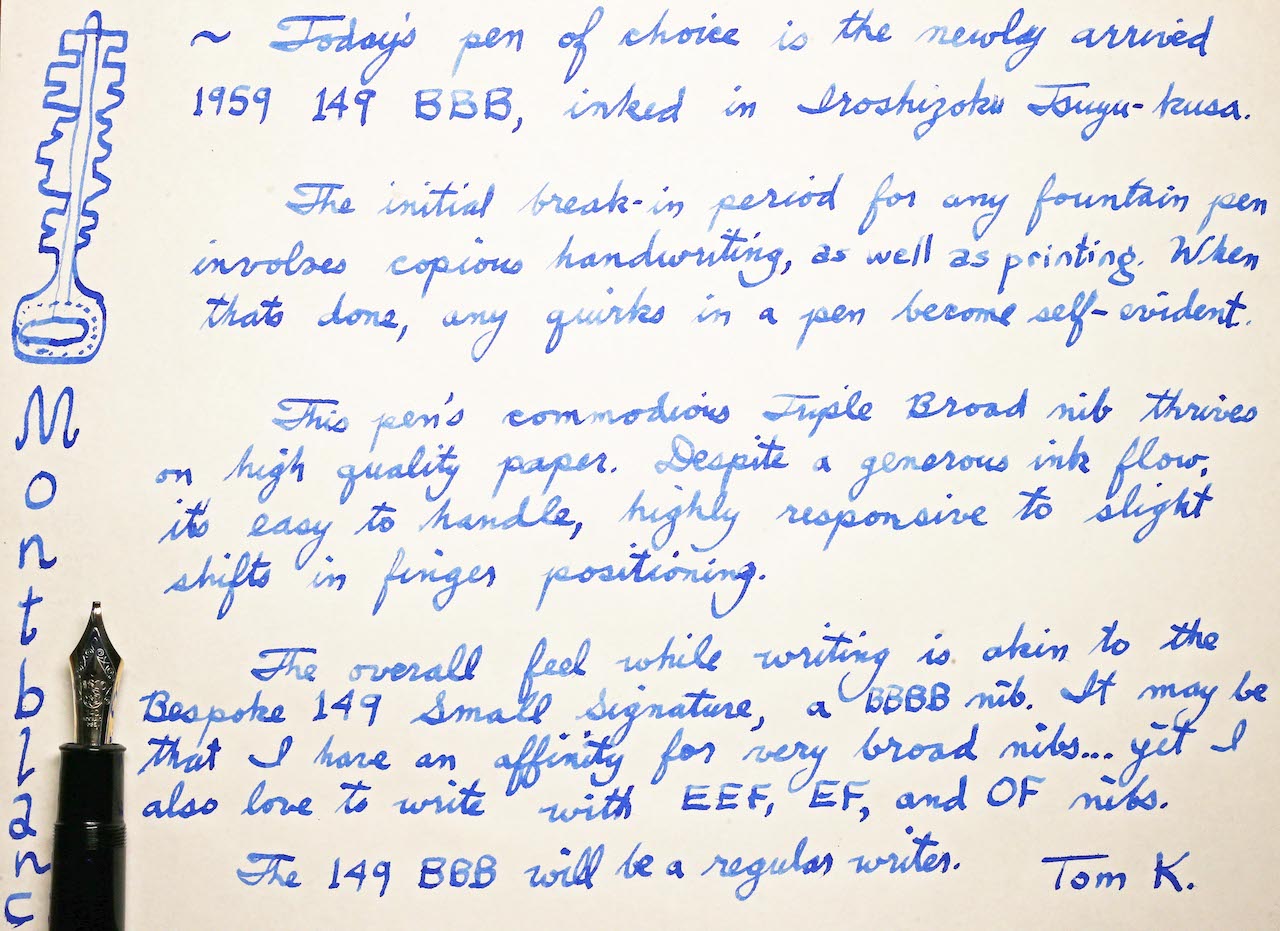 ~ Today's pen of choice is the newly arrived
1959 149 BBB, inked in Iroshizoku Tsuyu-kusa.
The initial break-in period for any fountain pen
involves copious handwriting, as well as printing. When
thats done, any quirks in a pen become self-evident.
This pen's commodious Triple Broad nib thrives
on high quality paper. Despite a generous ink flow,
it's easy to handle, highly responsive to slight
shifts in finger positioning.
The overall feel while writing is akin to the
Bespoke 149 Small Signature, a BBBB nib. It may be
that I have an affinity for very broad nibs... yet I
also love to write with EEF, EF, and OF nibs.
The 149 BBB will be a regular writer.
Tom K.
Montblanc